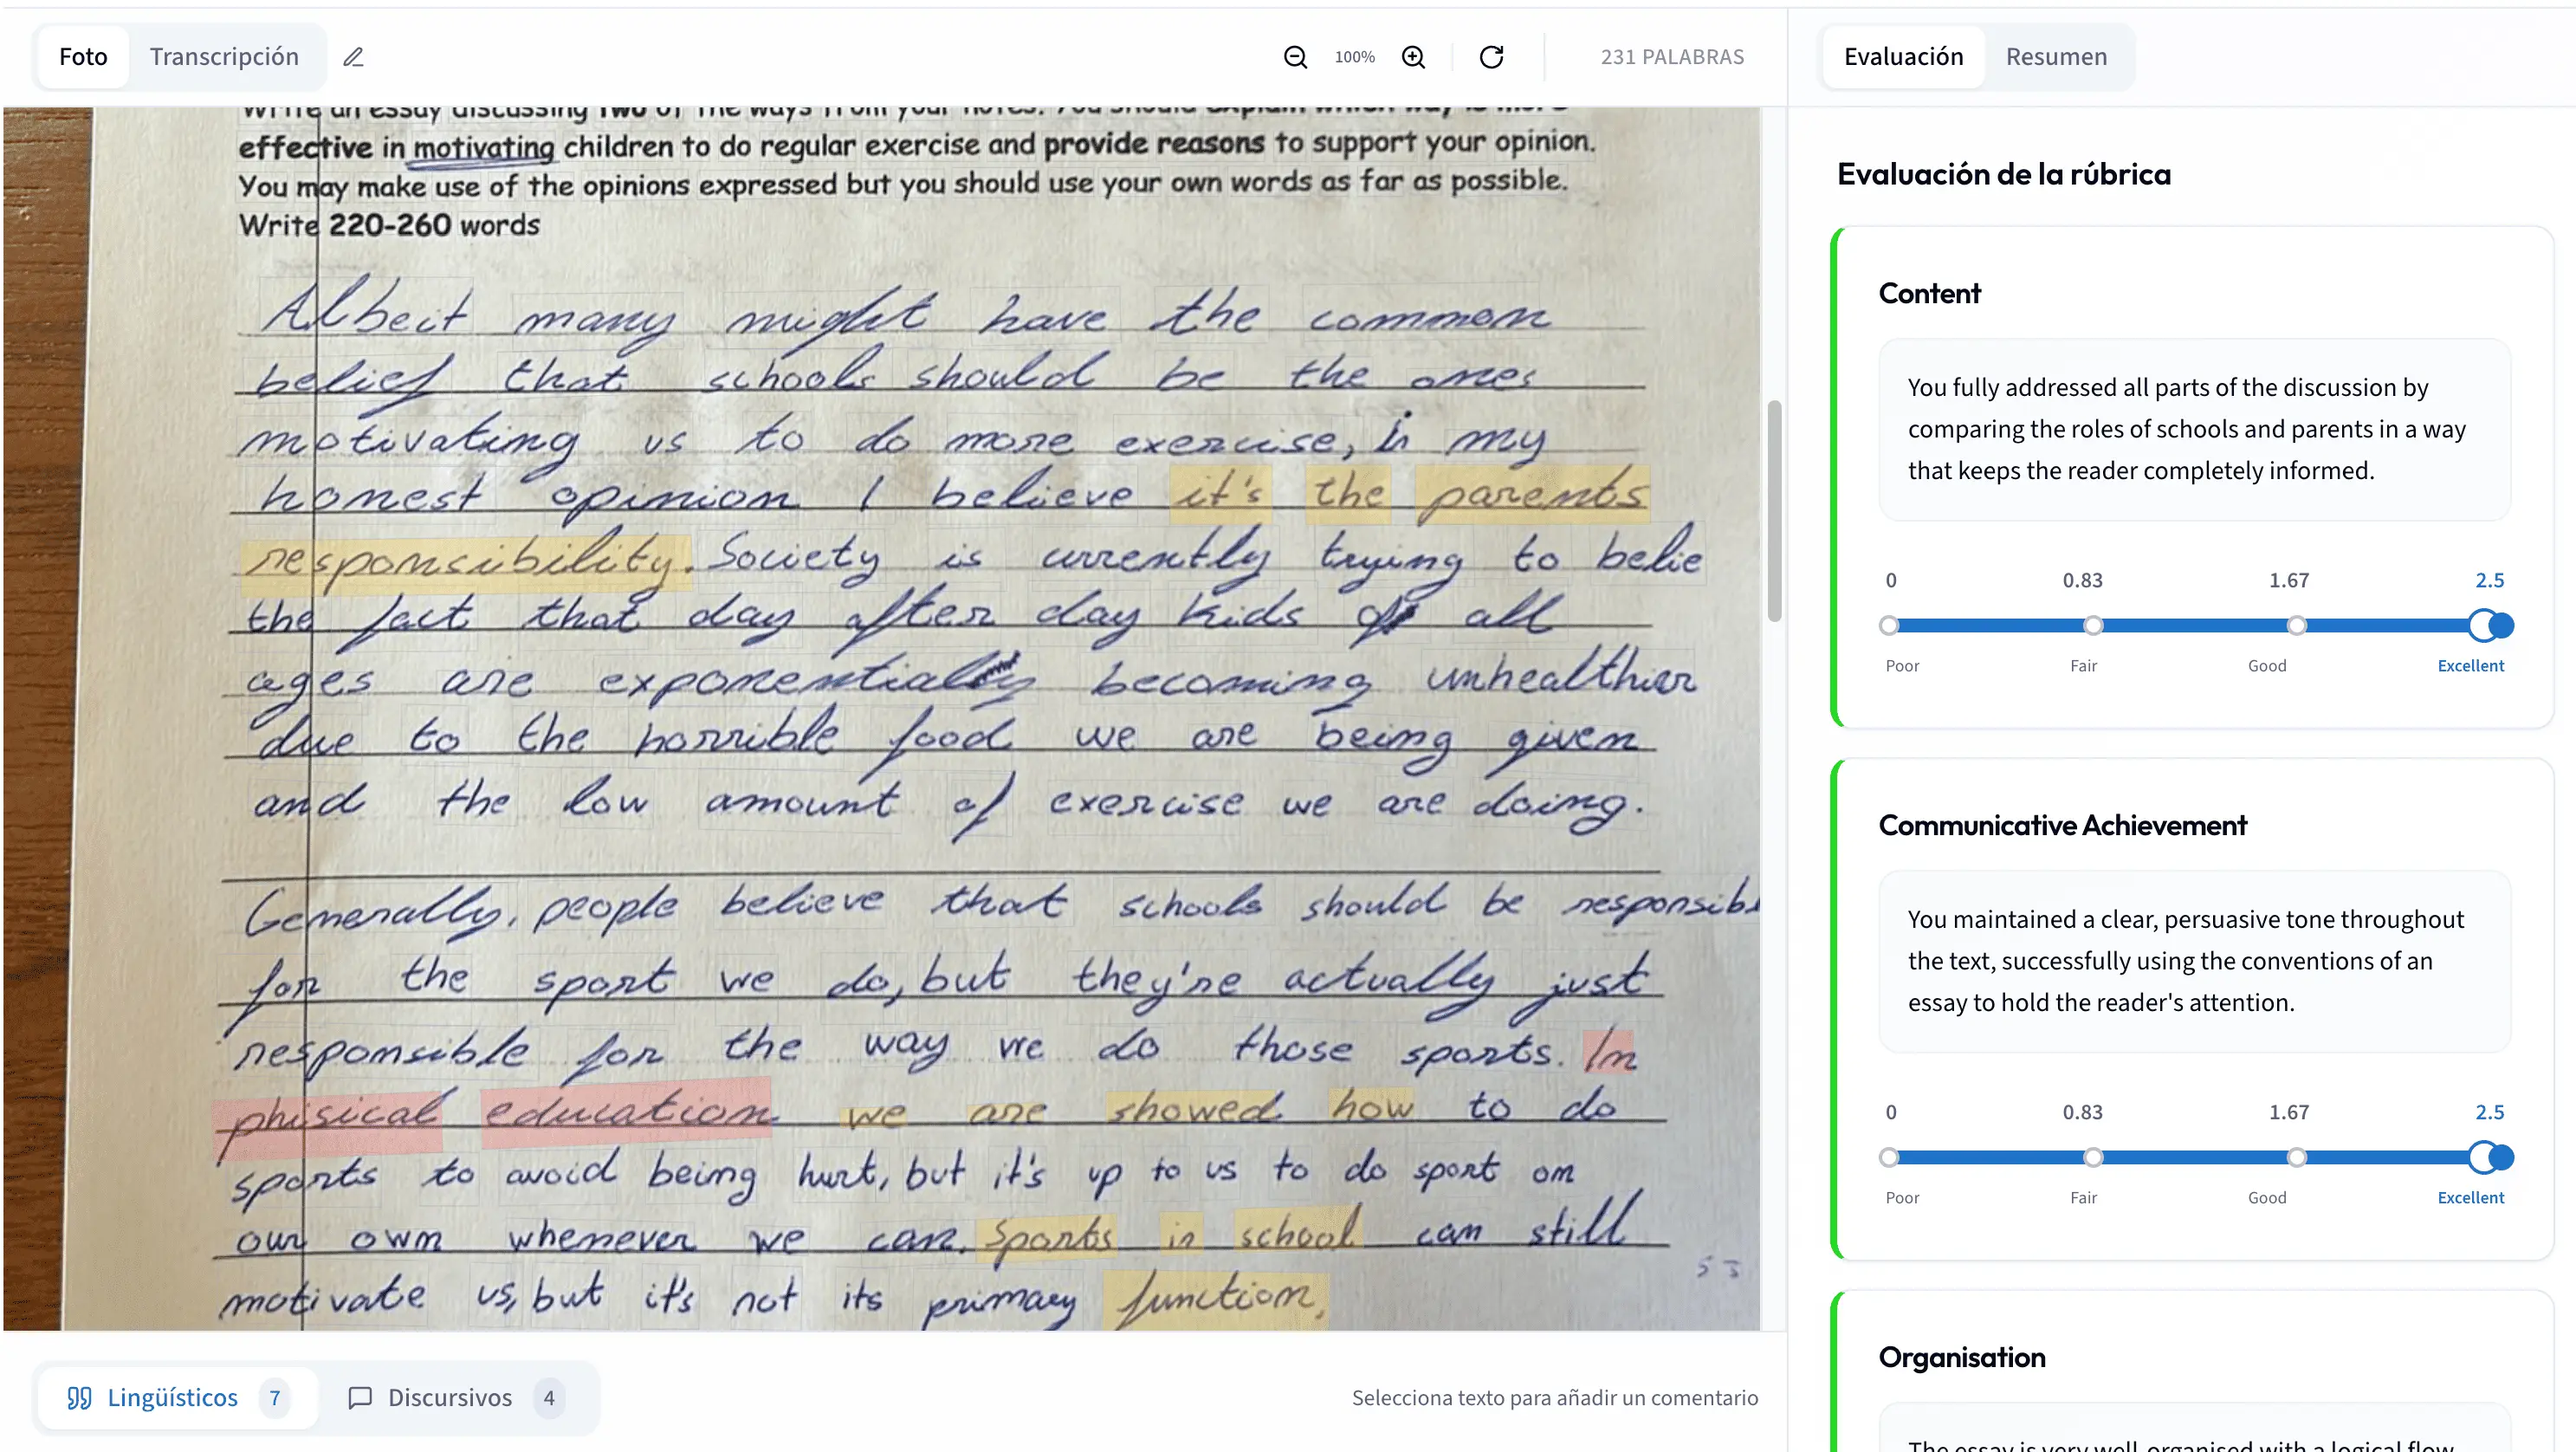 Foto
Transcripción
100%
231 PALABRAS
Evaluación
Resumen
Write an essay discussing two of the ways from your notes. You should explain which way is more
effective in motivating children to do regular exercise and provide reasons to support your opinion.
You may make use of the opinions expressed but you should use your own words as far as possible.
Write 220-260 words
Albeit many might have the common
belief that schools should be the ones
motivating us to do more exercise, in my
honest opinion I believe it's the parents
responsibility. Society is currently trying to belie
the fact that day after day kids of all
ages are exponentially becoming unhealthier
due to the horrible food we are being given
and the low amount of exercise we are doing.
Generally, people believe that schools should be responsibl
for the sport we do, but they're actually just
responsible for the way we do those sports. In
phisical education we are showed how to do
sports to avoid being hurt, but it's up to us to do sport on
our own whenever we can. Sports in school can still
motivate us, but it's not its primary function.
53
Lingüísticos 7
Discursivos 4
Selecciona texto para añadir un comentario
Evaluación de la rúbrica
Content
You fully addressed all parts of the discussion by
comparing the roles of schools and parents in a way
that keeps the reader completely informed.
0 0.83 1.67 2.5
Poor Fair Good Excellent
Communicative Achievement
You maintained a clear, persuasive tone throughout
the text, successfully using the conventions of an
essay to hold the reader's attention.
0 0.83 1.67 2.5
Poor Fair Good Excellent
Organisation
The essay is very well-organised with a logical flow